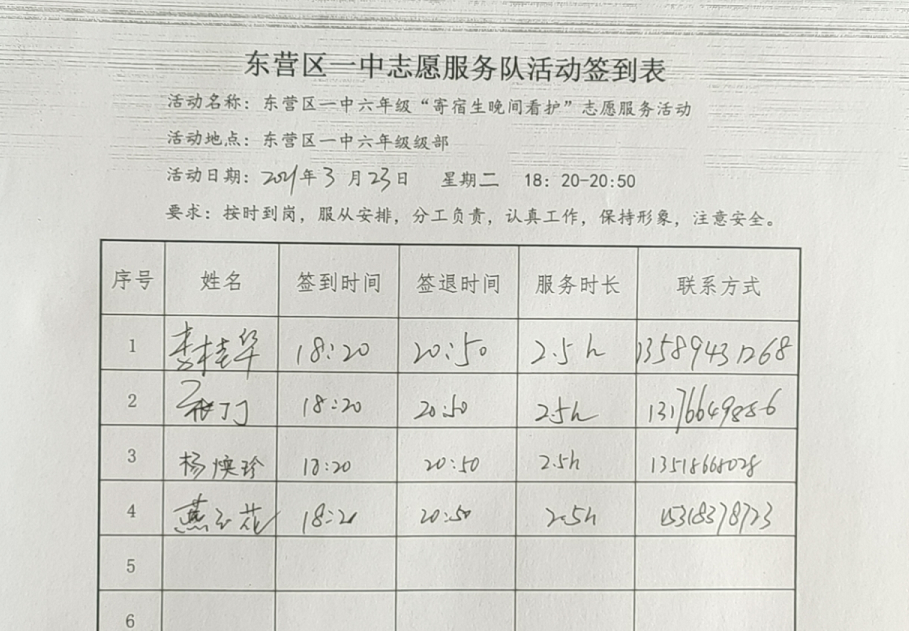 东营区一中志愿服务队活动签到表
活动名称：东营区一中六年级“寄宿生晚间看护”志愿服务活动
活动地点：东营区一中六年级级部
活动日期：2021年3月23日 星期二 18：20-20:50
要求：按时到岗，服从安排，分工负责，认真工作，保持形象，注意安全。
序号 姓名 签到时间 签退时间 服务时长 联系方式
1 李桂华 18:20 20:50 2.5h 13589431268
2 18:20 20:50 2.5h 13176649886
3 杨焕珍 18:20 20:50 2.5h 13518668028
4 燕云花 18:20 20:50 2.5h 15318378723
5
6